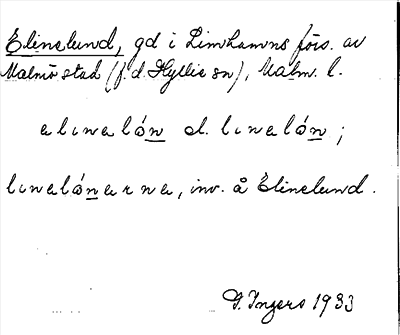 Elinelund, gd i Limhamns förs. av
Malmö stad (f.d. Hyllie sn), Malm. l.
elınalón el. lınalón ;
lınalónarna, inv. å Elinelund.
G. Ingers 1933